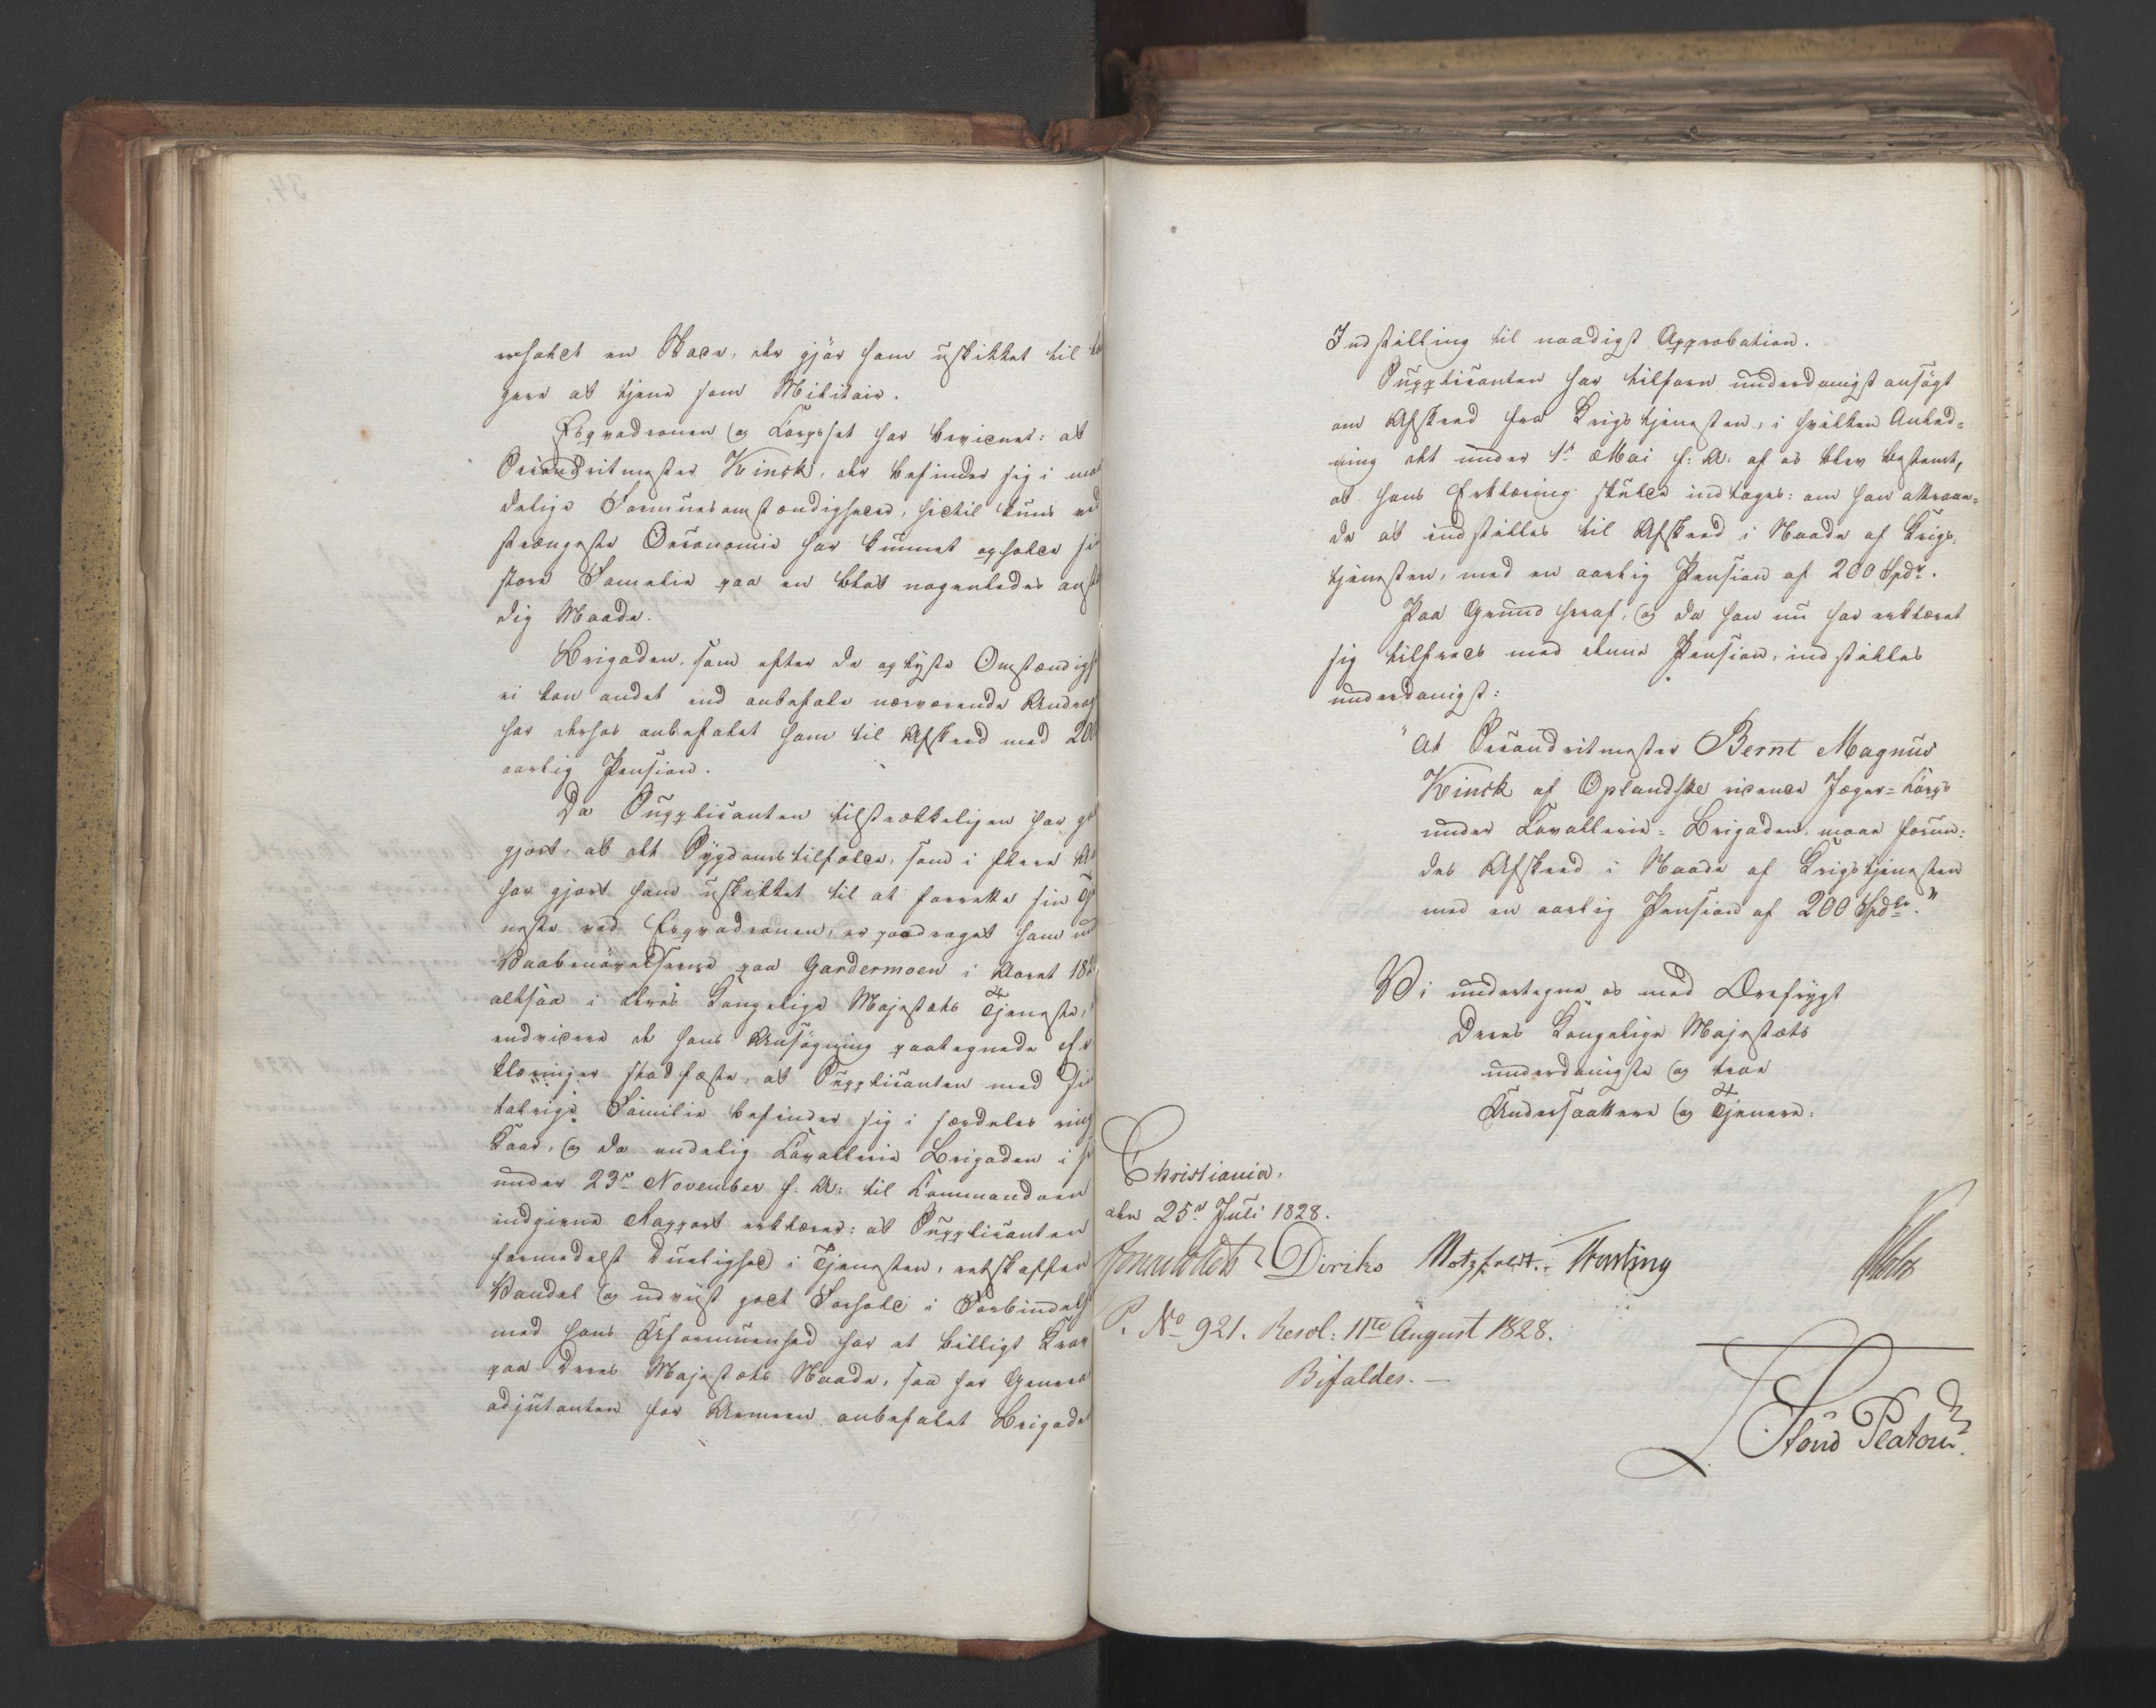 erholdt en Skade, der gjør ham uskikket til
gere at tjene som Militair.
Esqvadronen og Corpset har bevidnet: at
Secondritmester Kinck, der befinder sig i
delige Formuesomstændigheder, hidtil kuns ved
strængeste Oeconomie har kunnet opholde sin
store Familie paa en blot nogenledes anstæn
dig Maade.
Brigaden, som efter de oplyste Omstændigh
ei kan andet end anbefale nærværende Andrag
har derhos anbefalet ham til Afskeed med 200
aarlig Pension.
Da Supplicanten tilstrækkeligen har god
gjort, at det Sygdomstilfælde, som i flere Aa
har gjort ham uskikket til at forrette sin Tje
neste ved Esqvadronen, er paadraget ham und
Vaabenøvelserne paa Gardermoen i Aaret 18
altsaa i Deres Kongelige Majestæts Tjeneste,
endvidere de hans Ansøgning paategnede Er
klæringer stadfæste, at Supplicanten med Sin
talrige Familie befinder sig i særdeles ring
Kaar, og da endelig Cavallerie Brigaden i sin
under 23de November f: A: til Commandoen
indgivne Rapport erklærer: at Supplicanten
formedelst Duelighed i Tjenesten, retskaffen
Vandel og udviist godt Forhold i Forbindelse
med hans Uformuenhed har et billigt Krav
paa Deres Majestæts Naade, saa har General
adjutanten for Armeen anbefalet Brigade
Indstilling til naadigst Approbation.
Supplicanten har tilforn underdanigst ansøgt
om Afskeed fra Krigstjenesten, i hvilken Anled-
ning det under 1ste Mai f: A: af os blev bestemt,
at hans Erklæring skulde indtages: om han attraae-
de at indstilles til Afskeed i Naade af Krigs-
tjenesten, med en aarlig Pension af 200 Spdr.
Paa Grund heraf, og da han nu har erklæret
sig tilfreds med denne Pension, indstilles
underdanigst:
"At Secondritmester Bernt Magnus
Kinck af Oplandske ridende Jæger-Corps
under Cavallerie-Brigaden, maae forun-
des Afskeed i Naade af Krigstjenesten
med en aarlig Pension af 200 Spdlr."
Vi undertegne os med Ærefrygt
Deres Kongelige Majestæts
underdanigste og troe
Undersaattere og Tjenere.
Christiania,
den 25de Juli 1828.
Diriks Motzfeldt. Treschow Holst
P. No 921. Resol: 11te August 1828.
Bifaldes.—
Platou.